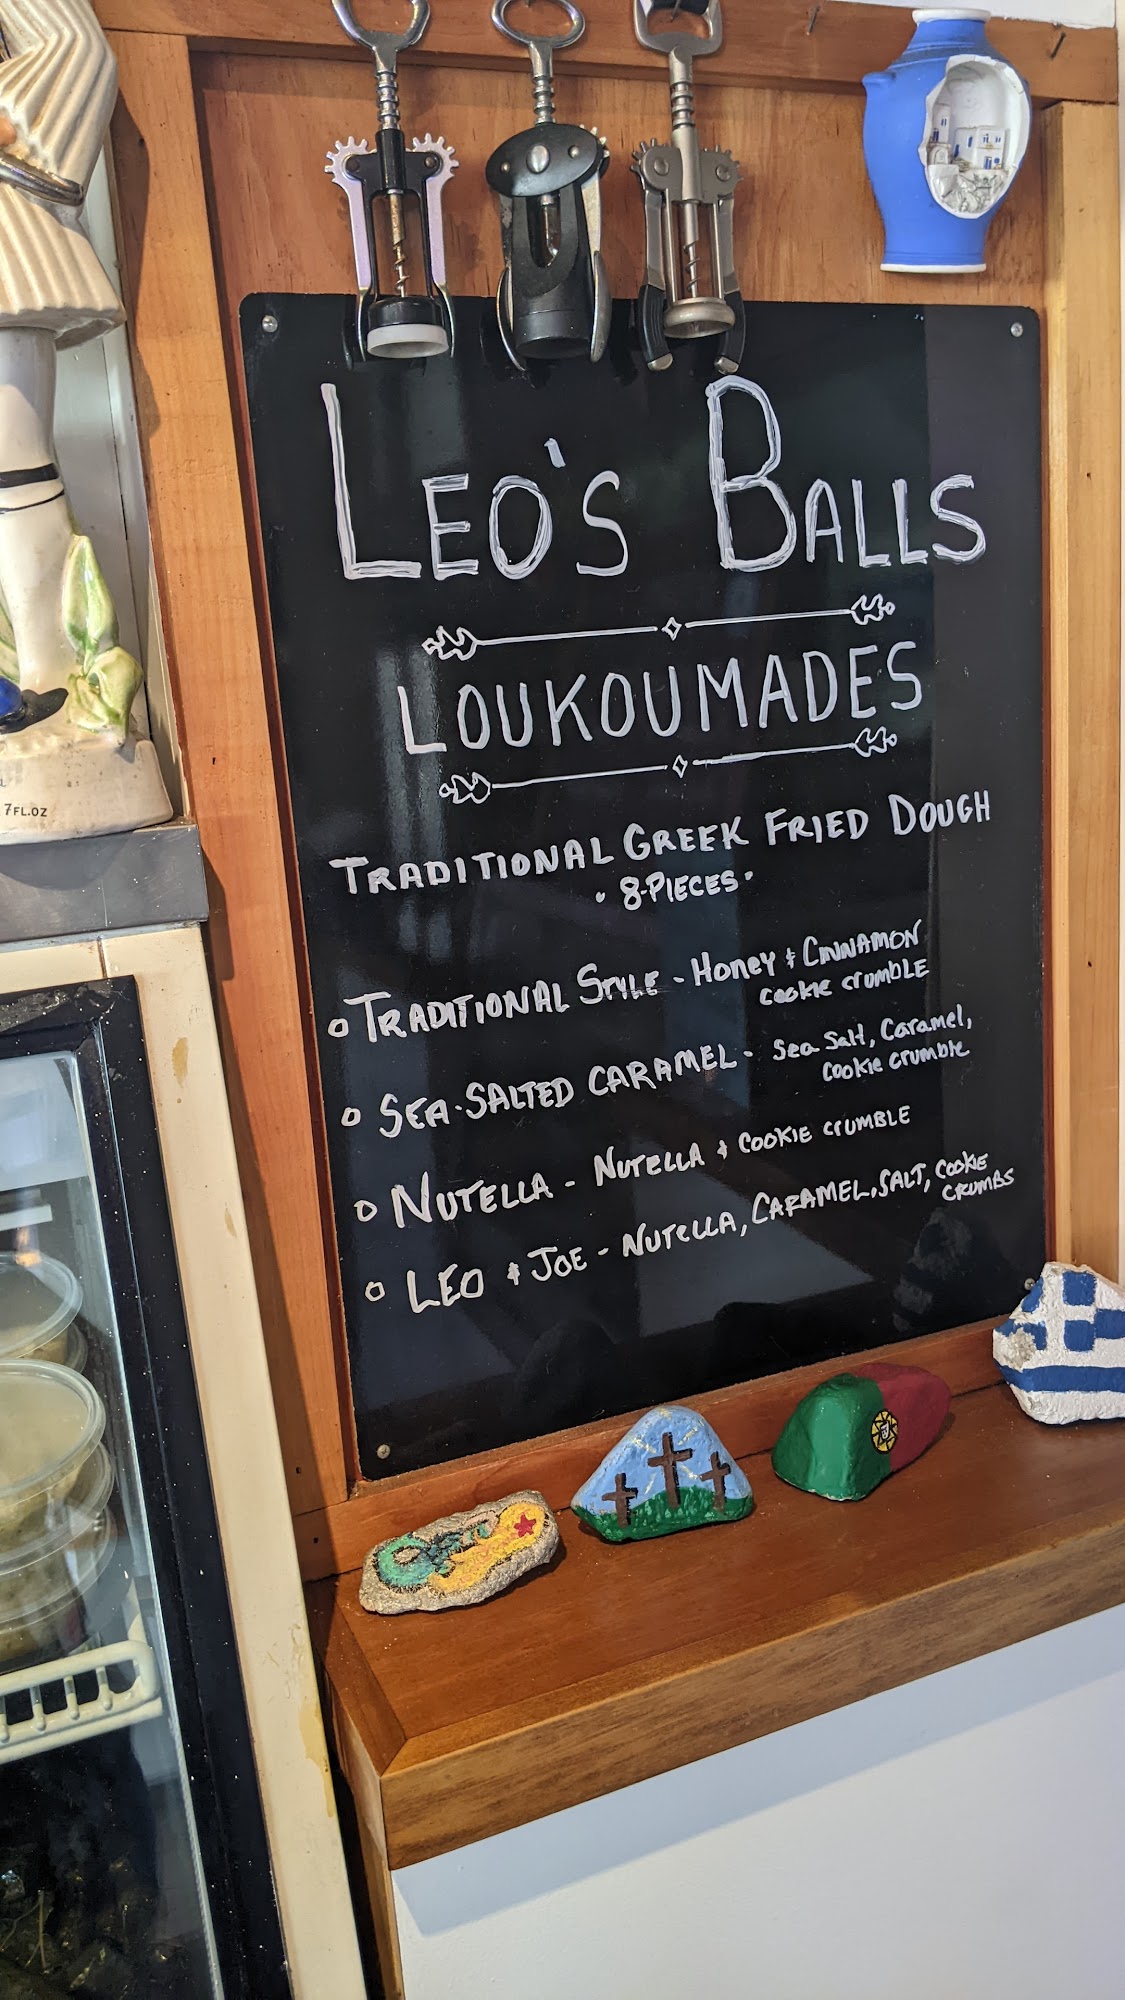 LEO'S BALLS
LOUKOUMADES
TRADITIONAL GREEK FRIED DOUGH
• 8-PIECES •
o TRADITIONAL STYLE - HONEY & CINNAMON
COOKIE CRUMBLE
o SEA-SALTED CARAMEL - Sea Salt, Caramel,
COOKIE CRUMBLE
o NUTELLA - NUTELLA & COOKIE CRUMBLE
o LEO & JOE - NUTELLA, CARAMEL, SALT, COOKIE
CRUMBS
7FL.OZ